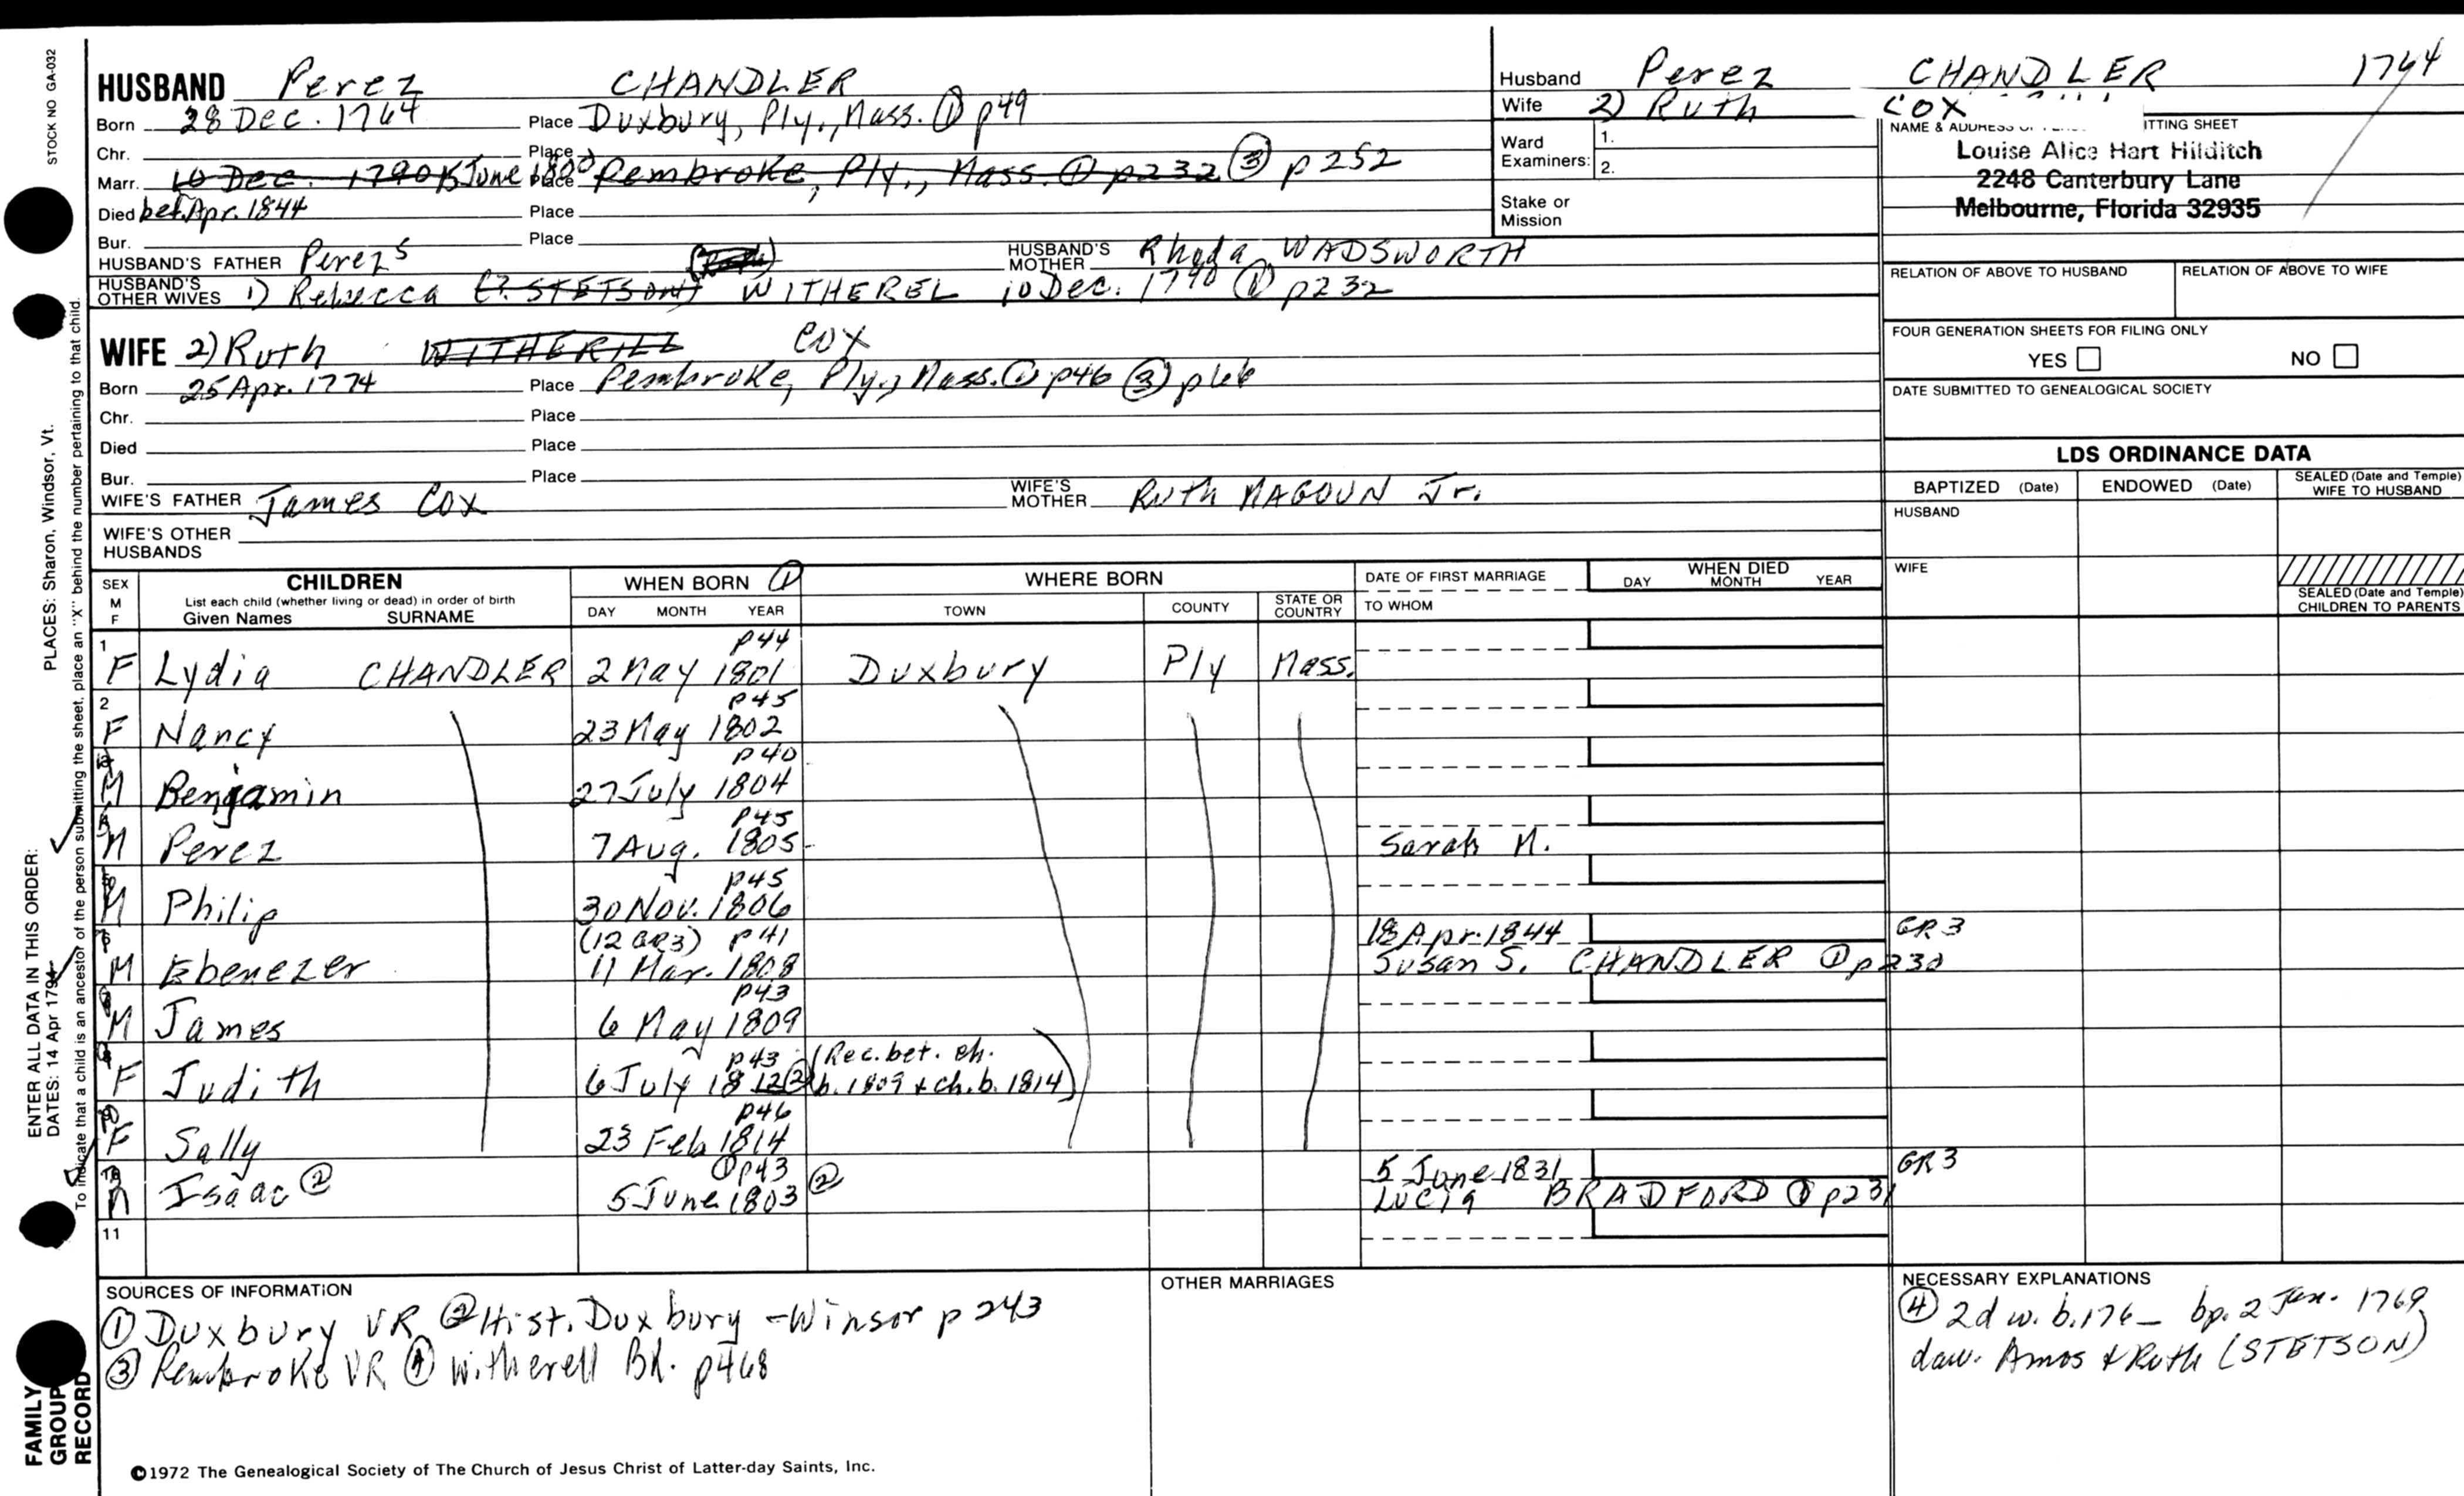 STOCK NO GA-032
HUSBAND Perez CHANDLER
Born 28 Dec. 1764 Place Duxbury, Ply., Mass. ① p49
Chr. Place
Marr. 10 Dec. 1790 15 June 1800 Place Pembroke, Ply., Mass. ① p232 ③ p252
Died bef. Apr. 1844 Place
Bur. Place
HUSBAND'S FATHER Perez 5 HUSBAND'S MOTHER Rhoda WADSWORTH
HUSBAND'S OTHER WIVES 1) Rebecca (? STETSON) WITHEREL 10 Dec. 1790 ① p232
WIFE 2) Ruth WITHERILL COX
Born 25 Apr. 1774 Place Pembroke, Ply., Mass. ① p46 ③ p66
Chr. Place
Died Place
Bur. Place
WIFE'S FATHER James COX WIFE'S MOTHER Ruth MAGOUN Jr.
WIFE'S OTHER HUSBANDS
Husband Perez CHANDLER 1764
Wife 2) Ruth COX
Ward Examiners: 1.
2.
Stake or Mission
NAME & ADDRESS ITTING SHEET
Louise Alice Hart Hilditch
2248 Canterbury Lane
Melbourne, Florida 32935
RELATION OF ABOVE TO HUSBAND RELATION OF ABOVE TO WIFE
FOUR GENERATION SHEETS FOR FILING ONLY
YES NO
DATE SUBMITTED TO GENEALOGICAL SOCIETY
LDS ORDINANCE DATA
BAPTIZED (Date) ENDOWED (Date) SEALED (Date and Temple) WIFE TO HUSBAND
HUSBAND
WIFE
SEALED (Date and Temple) CHILDREN TO PARENTS
SEX M F CHILDREN WHEN BORN ① WHERE BORN DATE OF FIRST MARRIAGE WHEN DIED
List each child (whether living or dead) in order of birth
Given Names SURNAME DAY MONTH YEAR TOWN COUNTY STATE OR COUNTRY TO WHOM DAY MONTH YEAR
1 p44
F Lydia CHANDLER 2 May 1801 Duxbury Ply Mass.
2 p45
F Nancy 23 May 1802
p40
M Benjamin 27 July 1804
p45
M Perez 7 Aug. 1805 Sarah M.
p45
M Philip 30 Nov. 1806
(12 GR3) p41 18 Apr. 1844 GR 3
M Ebenezer 11 Mar. 1808 Susan S. CHANDLER ① p230
p43
M James 6 May 1809
p43 (Rec. bet. ch.
F Judith 6 July 1812 ② b. 1809 & ch. b. 1814)
p46
F Sally 23 Feb 1814
① p43 5 June 1831 GR 3
M Isaac ② 5 June 1803 ② Lucia BRADFORD ① p231
11
SOURCES OF INFORMATION
① Duxbury VR ② Hist. Duxbury - Winsor p 243
③ Pembroke VR ④ Witherell Bk. p468
OTHER MARRIAGES
NECESSARY EXPLANATIONS
④ 2d w. b. 176_ bp. 2 Jan. 1769
dau. Amos & Ruth (STETSON)
©1972 The Genealogical Society of The Church of Jesus Christ of Latter-day Saints, Inc.
FAMILY GROUP RECORD
ENTER ALL DATA IN THIS ORDER:
DATES: 14 Apr 1794
PLACES: Sharon, Windsor, Vt.
To indicate that a child is an ancestor of the person submitting the sheet, place an "X" behind the number pertaining to that child.